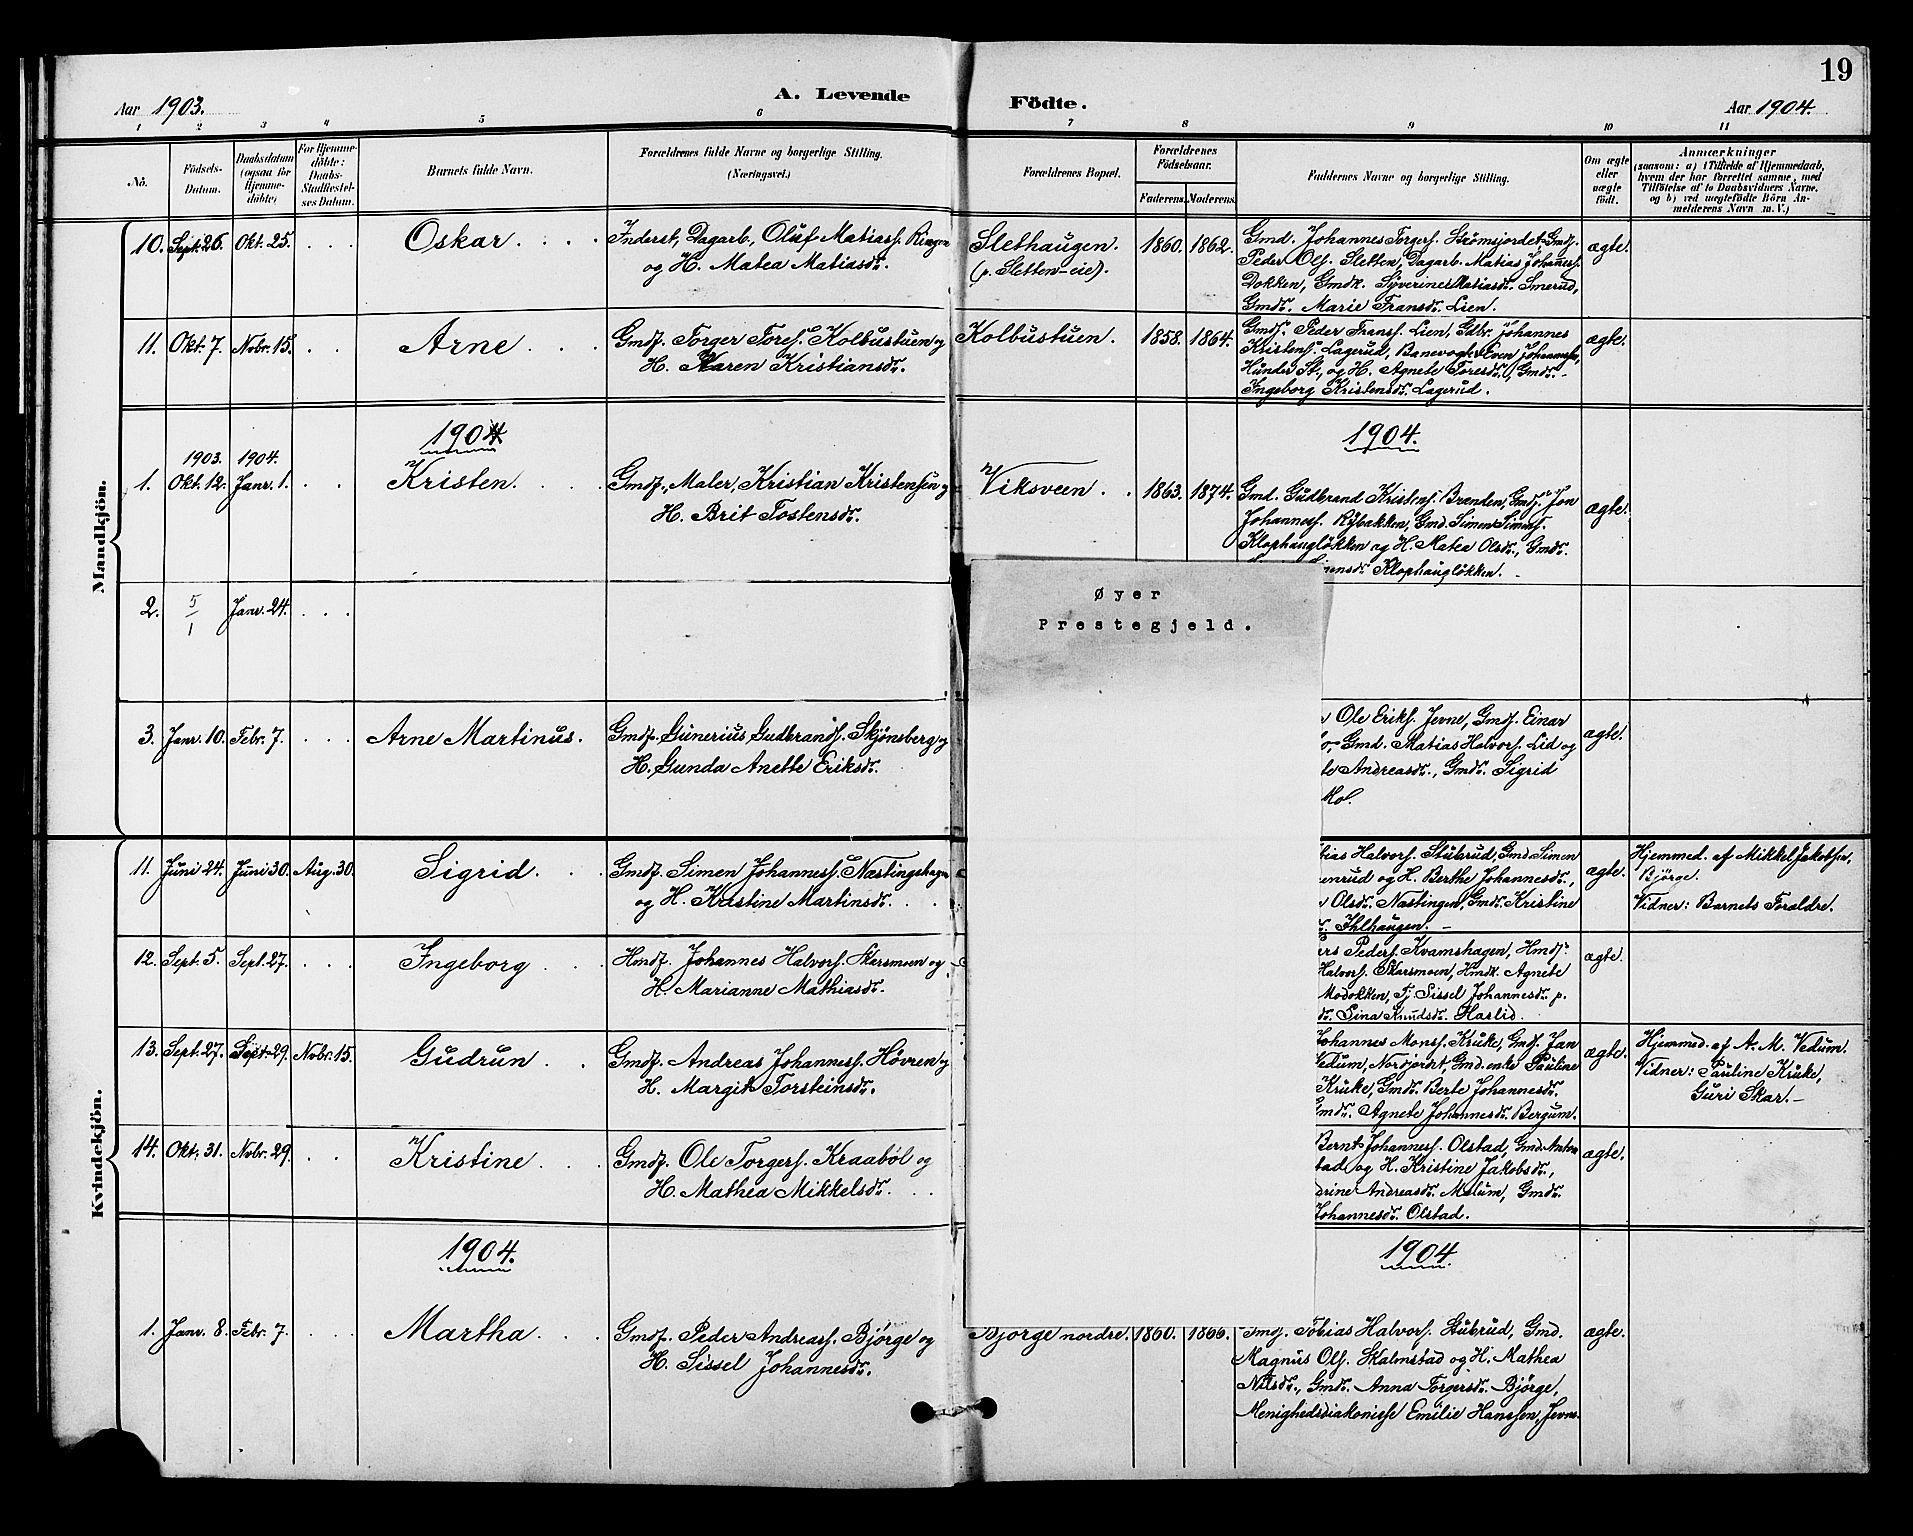 19
Aar 1903.
A. Levende
Födte.
Aar 1904.
1 2 3 4 5 6 7 8 9 10 11
No.
Födsels-
Datum.
Daabsdatum
(ogsaa for
Hjemme-
döbte)
For Hjemme-
döbte:
Daabs-
Stadfæstel-
ses Datum.
Barnets fulde Navn.
Forældrenes fulde Navne og borgerlige Stilling.
(Næringsvei.)
Forældrenes Bopæl.
Forældrenes
Födselsaar.
Faderens. Moderens.
Faddernes Navne og borgerlige Stilling.
Om ægte
eller
uægte
födt.
Anmærkninger
(saasom: a) i Tilfælde af Hjemmedaab,
hvem der har forrettet samme, med
Tilföielse af to Daabsvidners Navne,
og b) ved uægtefödte Börn An-
melderens Navn m. V.)
Mandkjön.
10. Sept. 26. Okt. 25. . . . Oskar . . . .
Inderst, Dagarb., Oluf Matiass. Ringen
og H. Matea Matiasdr.
Slethaugen.
(p. Sletten-eie).
1860. 1862.
Gmd. Johannes Torgers. Strømsjordet, Gmdf.
Peder Ols. Sletten, Dagarb. Matias Johaness.
Dokken, Gmdk. Syverine Matiasdr. Smerud,
Gmdr. Marie Fransdr. Lien.
ægte.
11. Okt. 7. Novbr. 15. . . Arne . . .
Gmdf. Torger Tores. Kolbustuen og
H. Karen Kristiansdr.
Kolbustuen. 1858. 1864.
Gmdf. Peder Franss. Lien, Gdbr. Johannes
Kristens. Lagerud, Banevogter Even Johanness.,
Hunder St., og H. Agnete Toresdr., Gmdr.
Ingeborg Kristensdr. Lagerud.
ægte.
1904
1904.
1903. 1904.
1. Okt. 12. Janr. 1. . . Kristen. . .
Gmdf., Maler, Kristian Kristensen og
H. Brit Tostensdr.
Viksveen . . 1863. 1874.
Gmd. Gudbrand Kristens. Brænden, Gmdf. Jon
Johanness. Rybakken, Gmd. Simen Simens.
Klophaugløkken og H. Matea Olsdr., Gmdr.
Klophaugløkken.
ægte.
Øyer
Prestegjeld.
2. 5/1 Janr. 24. . . .
3. Janr. 10. Febr. 7. . . . Arne Martinus.
Gmdf. Gunerius Gudbrands. Skjønsberg og
H. Gunda Anette Eriksdr.
Ole Eriks. Jevne, Gmdf. Einar
Gmd. Matias Halvors. Lid og
Andreasdr., Gmdr. Sigrid
ægte.
Kvindekjön.
11. Juni 24. Juni 30. Aug. 30. Sigrid . . .
Gmdf. Simen Johanness. Næstingshagen
og H. Kristine Martinsdr. . .
Halvors. Stubrud, Gmd. Simen
og H. Berthe Johannesdr.,
Olsdr. Næstingen, Gmdr. Kristine
Ihlhaugen.
ægte.
Hjemmed. af Mikkel Jakobsen,
Bjørge.
Vidner: Barnets Forældre.
12. Sept. 5. Sept. 27. . . . Ingeborg . . .
Hmdf. Johannes Halvors. Skarsmoen og
H. Marianne Mathiasdr.
Peders. Kvamshagen, Hmdf.
Halvors. Skarsmoen, Hmdk. Agnete
Modokken, Tj. Sissel Johannesdr. p.
Sina Knudsdr. Haslid.
ægte.
13. Sept. 27. Sept. 29. Novbr. 15. Gudrun . .
Gmdf. Andreas Johanness. Høvren og
H. Margit Torsteinsdr.
Johannes Monss. Kruke, Gmdf. Jan
Vedum, Nordjordet, Gmd.enke Pauline
Kruke, Gmdr. Berte Johannesdr.
Agnete Johannesdr. Bergum.
ægte.
Hjemmed. af A. M. Vedum.
Vidner: Pauline Kruke,
Guri Skar.
14. Okt. 31. Novbr. 29. . . Kristine . . .
Gmdf. Ole Torgers. Kraabøl og
H. Mathea Mikkelsdr. . .
Bernt Johanness. Olstad, Gmd. Anton
og H. Kristine Jakobsdr.,
Andreasdr. Melum, Gmdr.
Johannesdr. Olstad.
ægte.
1904.
1904
1. Janr. 8. Febr. 7. . . . Martha . . .
Gmdf. Peder Andreass. Bjørge og
H. Sissel Johannesdr.
Bjørge nordre. 1860. 1866.
Gmdf. Tobias Halvors. Stubrud, Gmd.
Magnus Ols. Skalmstad og H. Mathea
Nilsdr., Gmdr. Anna Torgersdr. Bjørge,
Menighedsdiakonisse Emilie Hanssen, Jevne.
ægte.